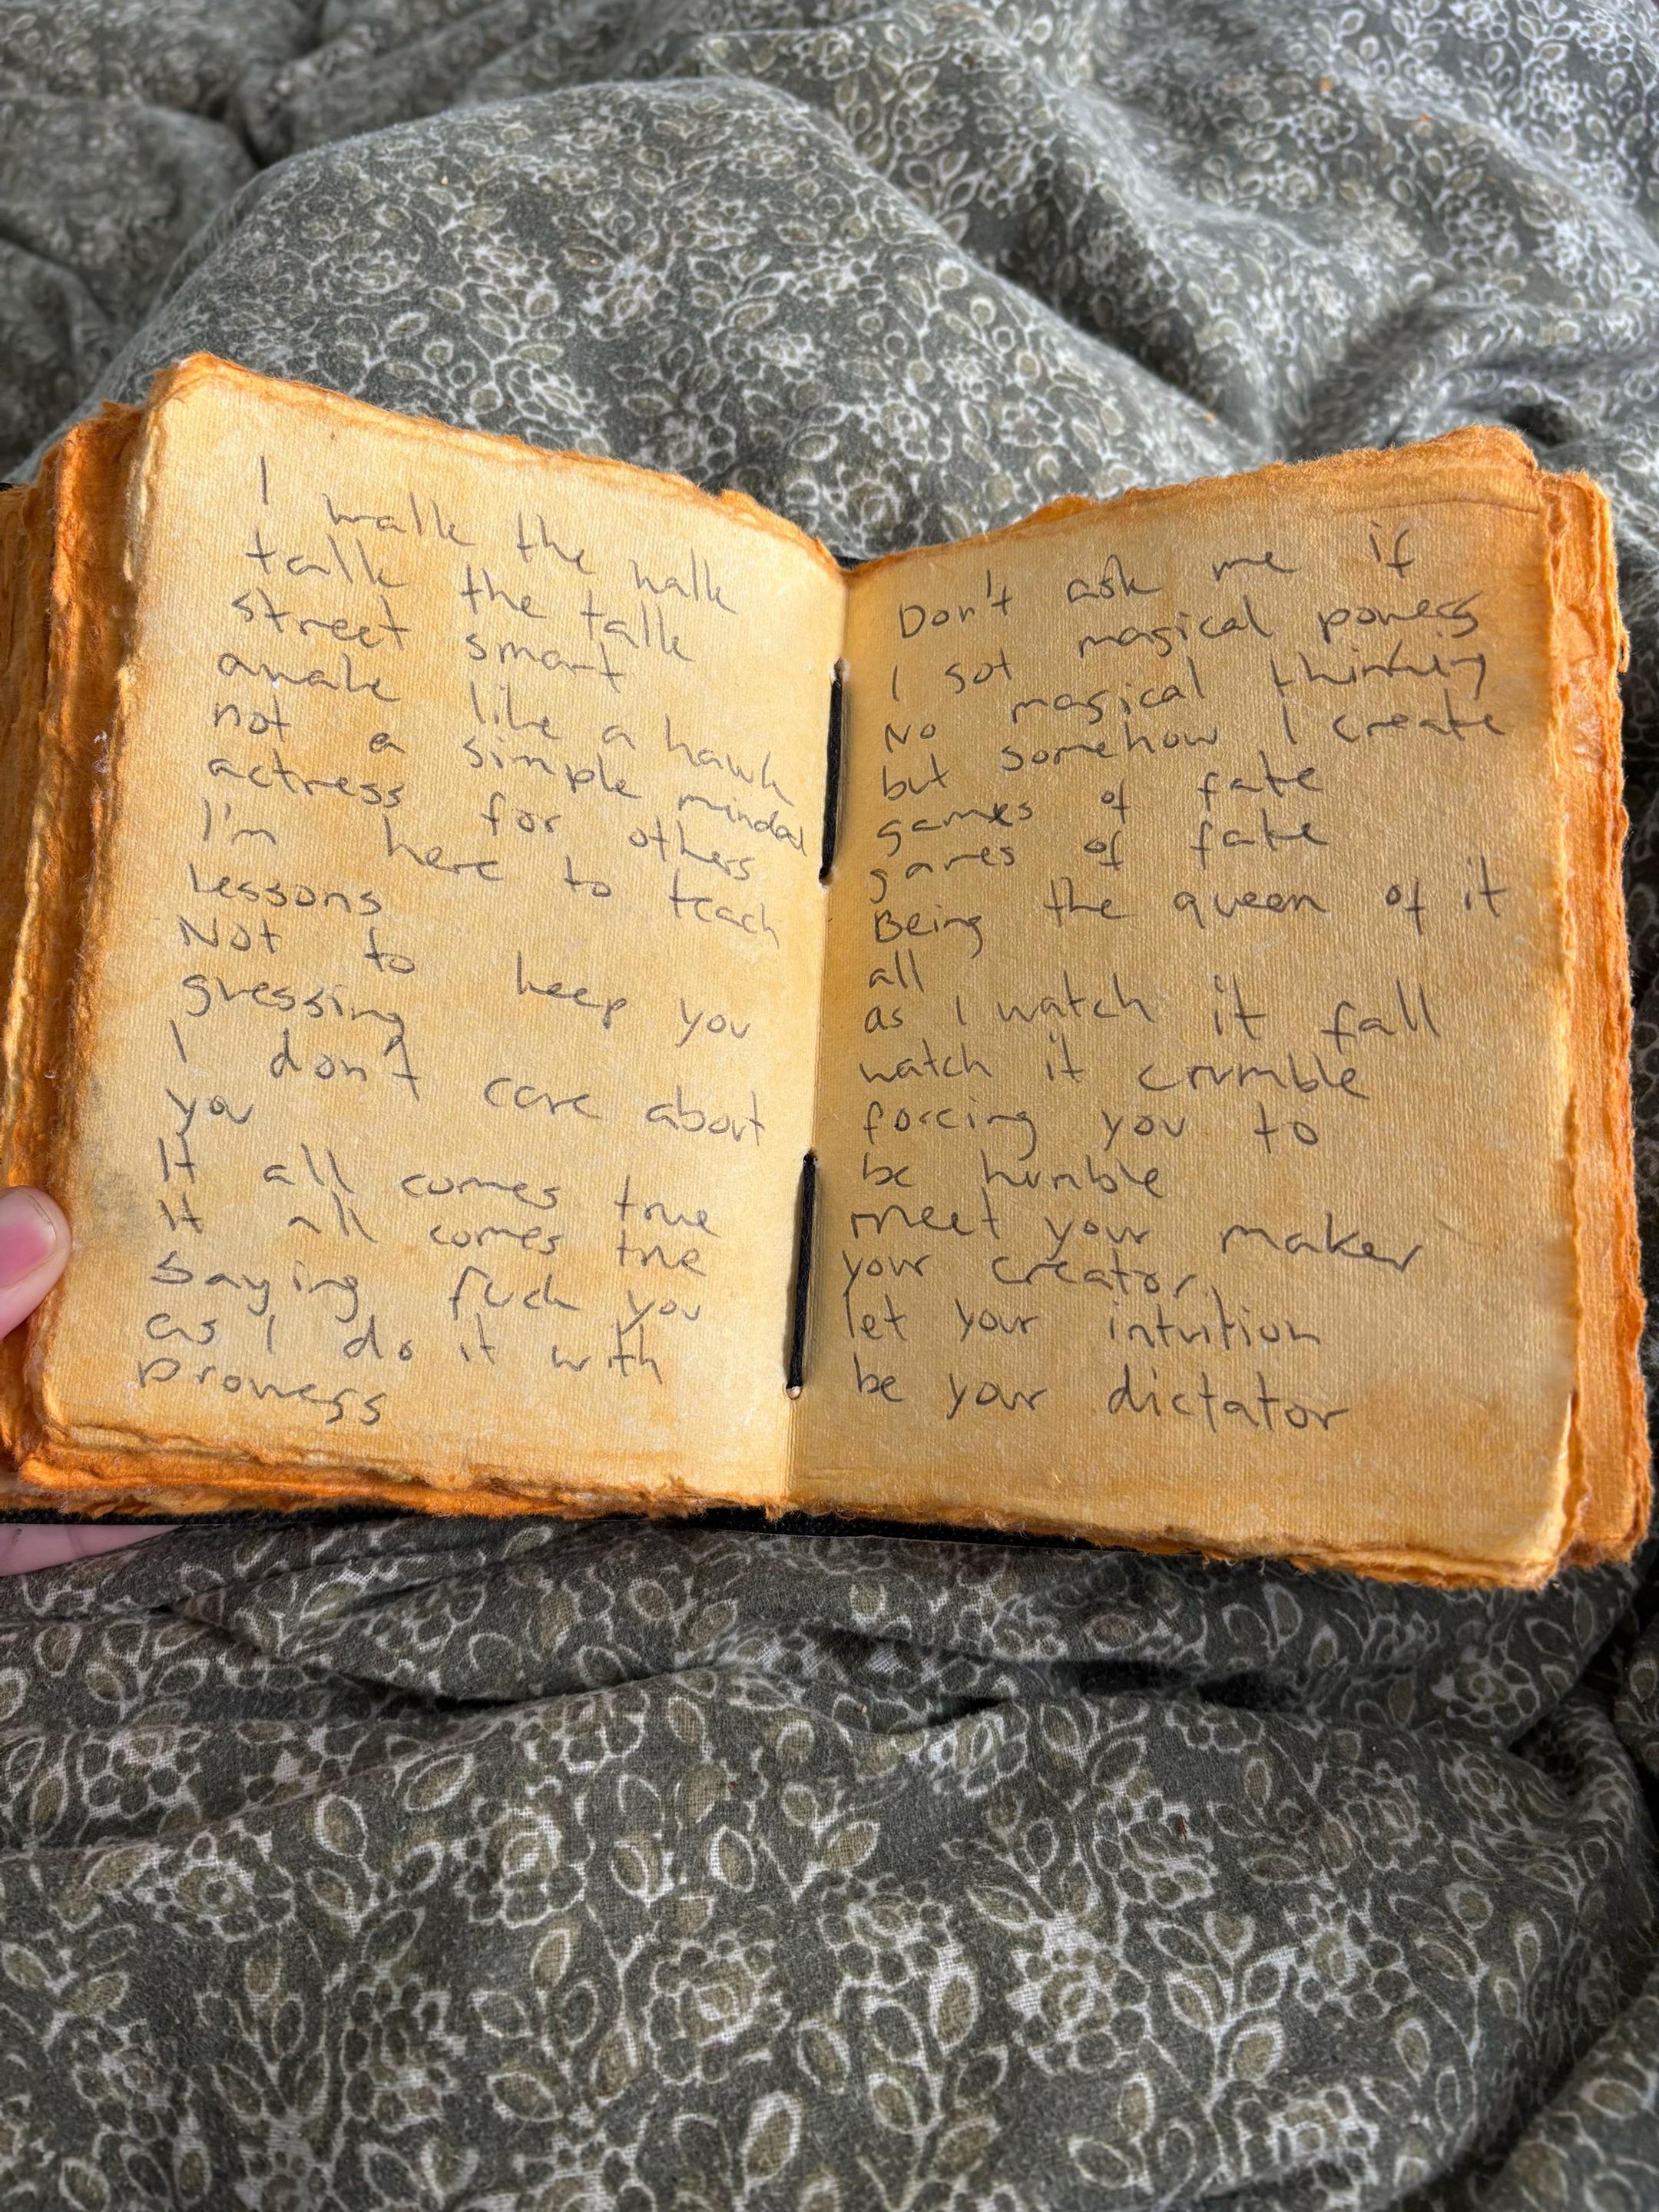 I walk the walk
talk the talk
street smart
awake like a hawk
not a simple minded
actress for others
I'm here to teach
lessons
Not to keep you
guessing
I don't care about
you
It all comes true
It all comes true
saying fuck you
as I do it with
prowess
Don't ask me if
I got magical powers
No magical thinking
but somehow I create
games of fate
games of fate
Being the queen of it
all
as I watch it fall
watch it crumble
forcing you to
be humble
meet your maker
your creator,
let your intuition
be your dictator